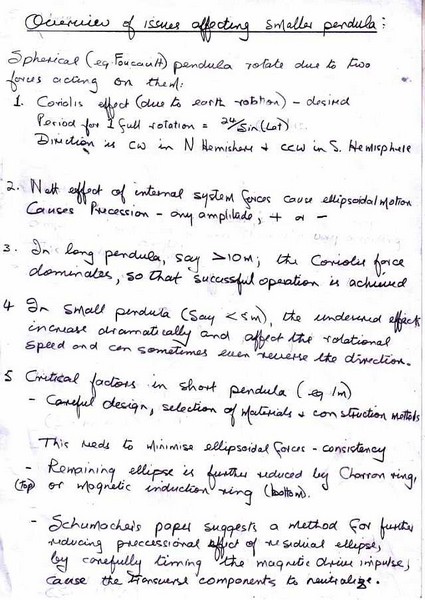 Overview of issues affecting smaller pendula:
Spherical (eg Foucault) pendula rotate due to two
forces acting on them:
1. Coriolis effect (due to earth rotation) - desired
Period for 1 full rotation = 24/Sin(Lat)
Direction is CW in N Hemishere + CCW in S. Hemisphere
2. Nett effect of internal system forces cause ellipsoidal motion
Causes Precession - any amplitude, + or -
3. In long pendula, say >10m, the Coriolis force
dominates, so that successful operation is achieved
4 In small pendula (say <5m), the undesired effects
increase dramatically and affect the rotational
speed and can sometimes even reverse the direction.
5 Critical factors in short pendula (eg 1m)
- Careful design, selection of Materials + construction methods
This needs to minimise ellipsoidal forces - consistency
- Remaining ellipse is further reduced by Charron ring,
(top) or magnetic induction ring (bottom).
- Schumacher's paper suggests a method for further
reducing precessional effect of residual ellipse,
by carefully timing the magnetic drive impulse,
cause the transverse components to neutralize.